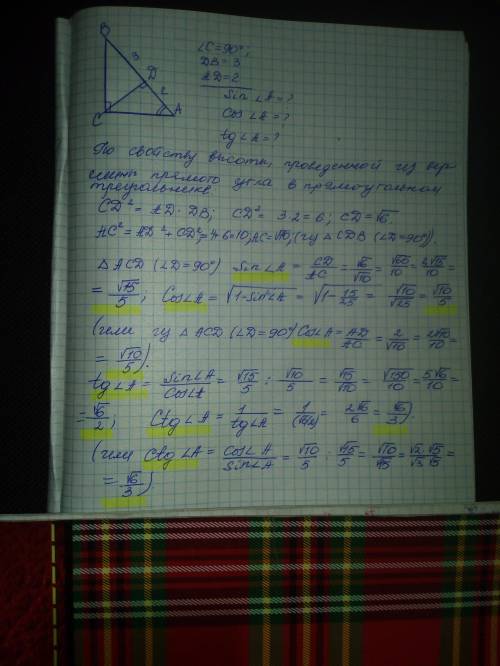 B
3
D
2
C
A
∠C=90°;
DB=3
AD=2
Sin∠A=?
Cos∠A=?
tg∠A=?
По свойству высоты, проведенной из вер-
шины прямого угла в прямоугольном
треугольнике
CD²=AD·DB; CD²=3·2=6; CD=√6.
AC²=AD²+CD²=4+6=10; AC=√10; (из △CDB (∠D=90°)).
△ACD (∠D=90°) Sin∠A = CD/AC = √6/√10 = √60/10 = 2√15/10 =
= √15/5; Cos∠A = √(1-Sin²∠A) = √(1-15/25) = √10/√25 = √10/5
(или из △ACD (∠D=90°) Cos∠A = AD/AC = 2/√10 = 2√10/10 =
= √10/5).
tg∠A = Sin∠A/Cos∠A = √15/5 : √10/5 = √15/√10 = √150/10 = 5√6/10 =
= √6/2; Ctg∠A = 1/tg∠A = 1/(√6/2) = 2√6/6 = √6/3;
(или Ctg∠A = Cos∠A/Sin∠A = √10/5 : √15/5 = √10/√15 = √2/√3 =
= √6/3)